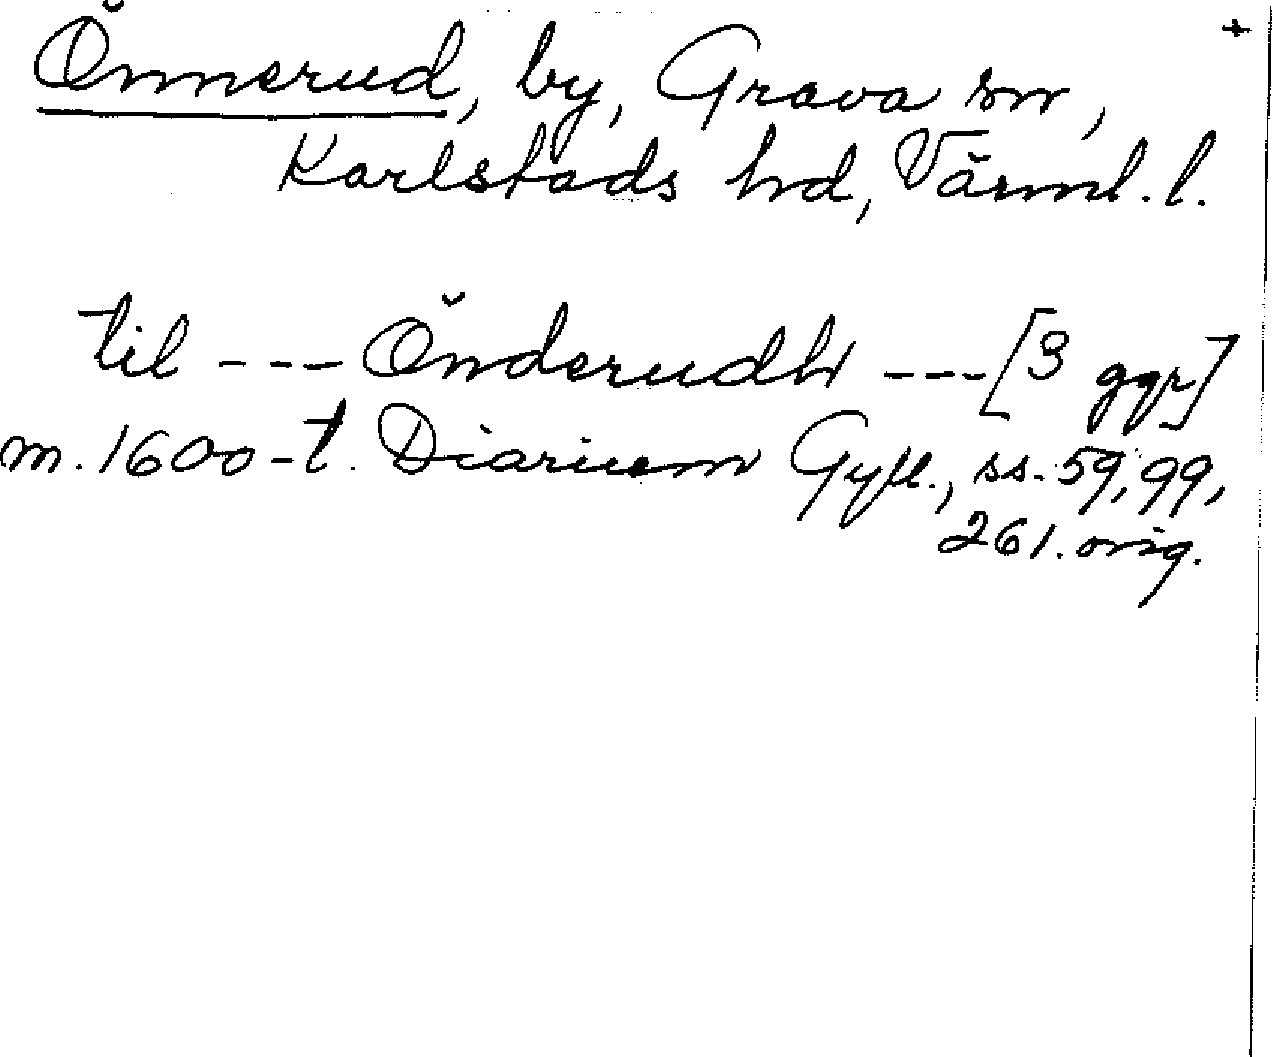 +
Önnerud, by, Grava sn,
Karlstads hd, Värml. l.
til --- Önderudh --- [3 ggr]
m. 1600-t. Diarium Gyll., ss. 59, 99,
261. orig.